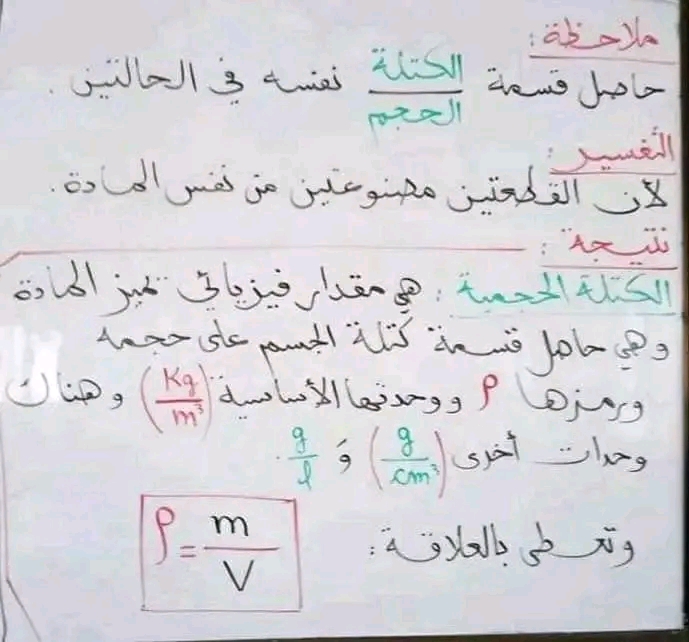 ملاحظة :
حاصل قسمة الكتلة / الحجم نفسه في الحالتين .
التفسير :
لأن القطعتين مصنوعتين من نفس المادة .
نتيجة :
الكتلة الحجمية : هي مقدار فيزيائي تميز المادة
وهي حاصل قسمة كتلة الجسم على حجمه
ورمزها ρ ووحدتها الأساسية (Kg/m³) وهناك
وحدات أخرى (g/cm³) وَ g/l .
وتعطى بالعلاقة :
ρ = m/V